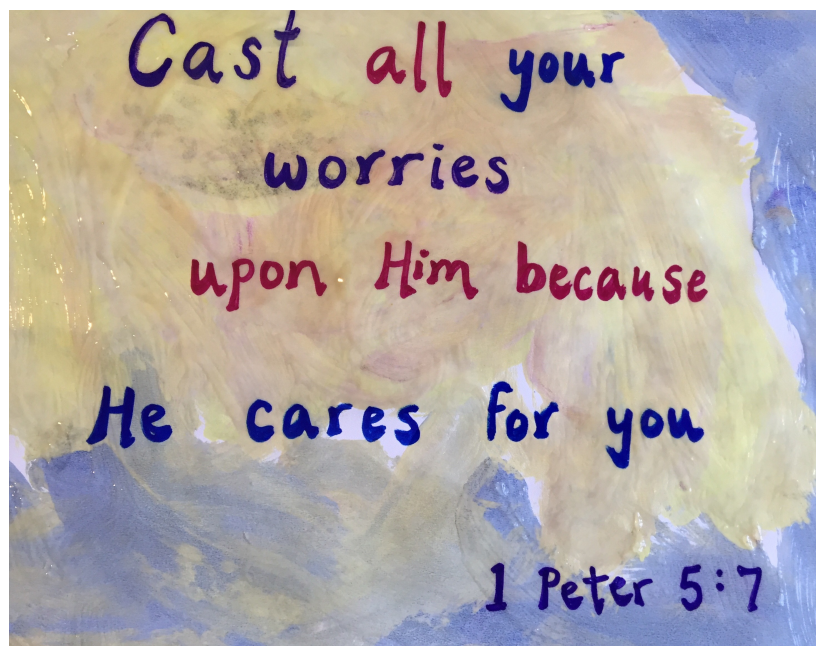 Cast all your
worries
upon Him because
He cares for you
1 Peter 5:7